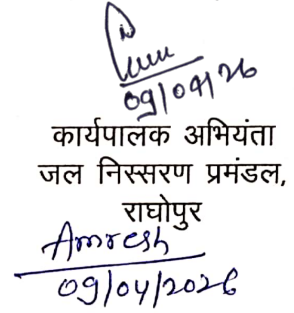 09/04/26
कार्यपालक अभियंता
जल निस्सरण प्रमंडल,
राघोपुर
Amresh
09/04/2026